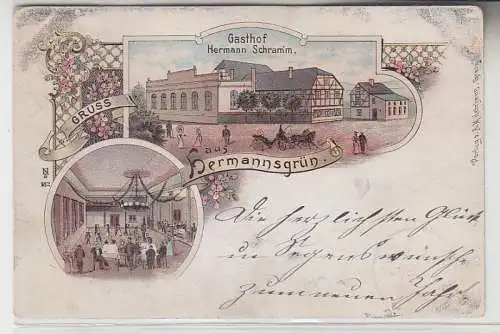 Gasthof
Hermann Schramm.
GRUSS
aus
Hermannsgrün.
Die herzlichsten Glück
u Segenswünsche
zum neuen Jahr